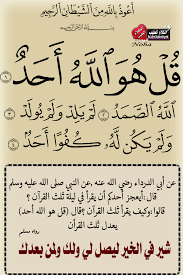 أعوذ بالله من الشيطان الرجيم
Nisha
قُلْ هُوَ ٱللَّهُ أَحَدٌ
ٱللَّهُ ٱلصَّمَدُ لَمْ يَلِدْ وَلَمْ يُولَدْ
وَلَمْ يَكُن لَّهُۥ كُفُوًا أَحَدٌۢ
عن أبي الدرداء رضي الله عنه ,عن النبي صلى الله عليه وسلم
قال: أيعجز أحدكم أن يقرأ في ليلة ثلث القرآن ؟
قالوا: وكيف يقرأ ثلث القرآن ؟قال: (قل هو الله أحد)
يعدل ثلث القرآن
رواه مسلم
شير في الخير ليصل لي ولك ولمن بعدك